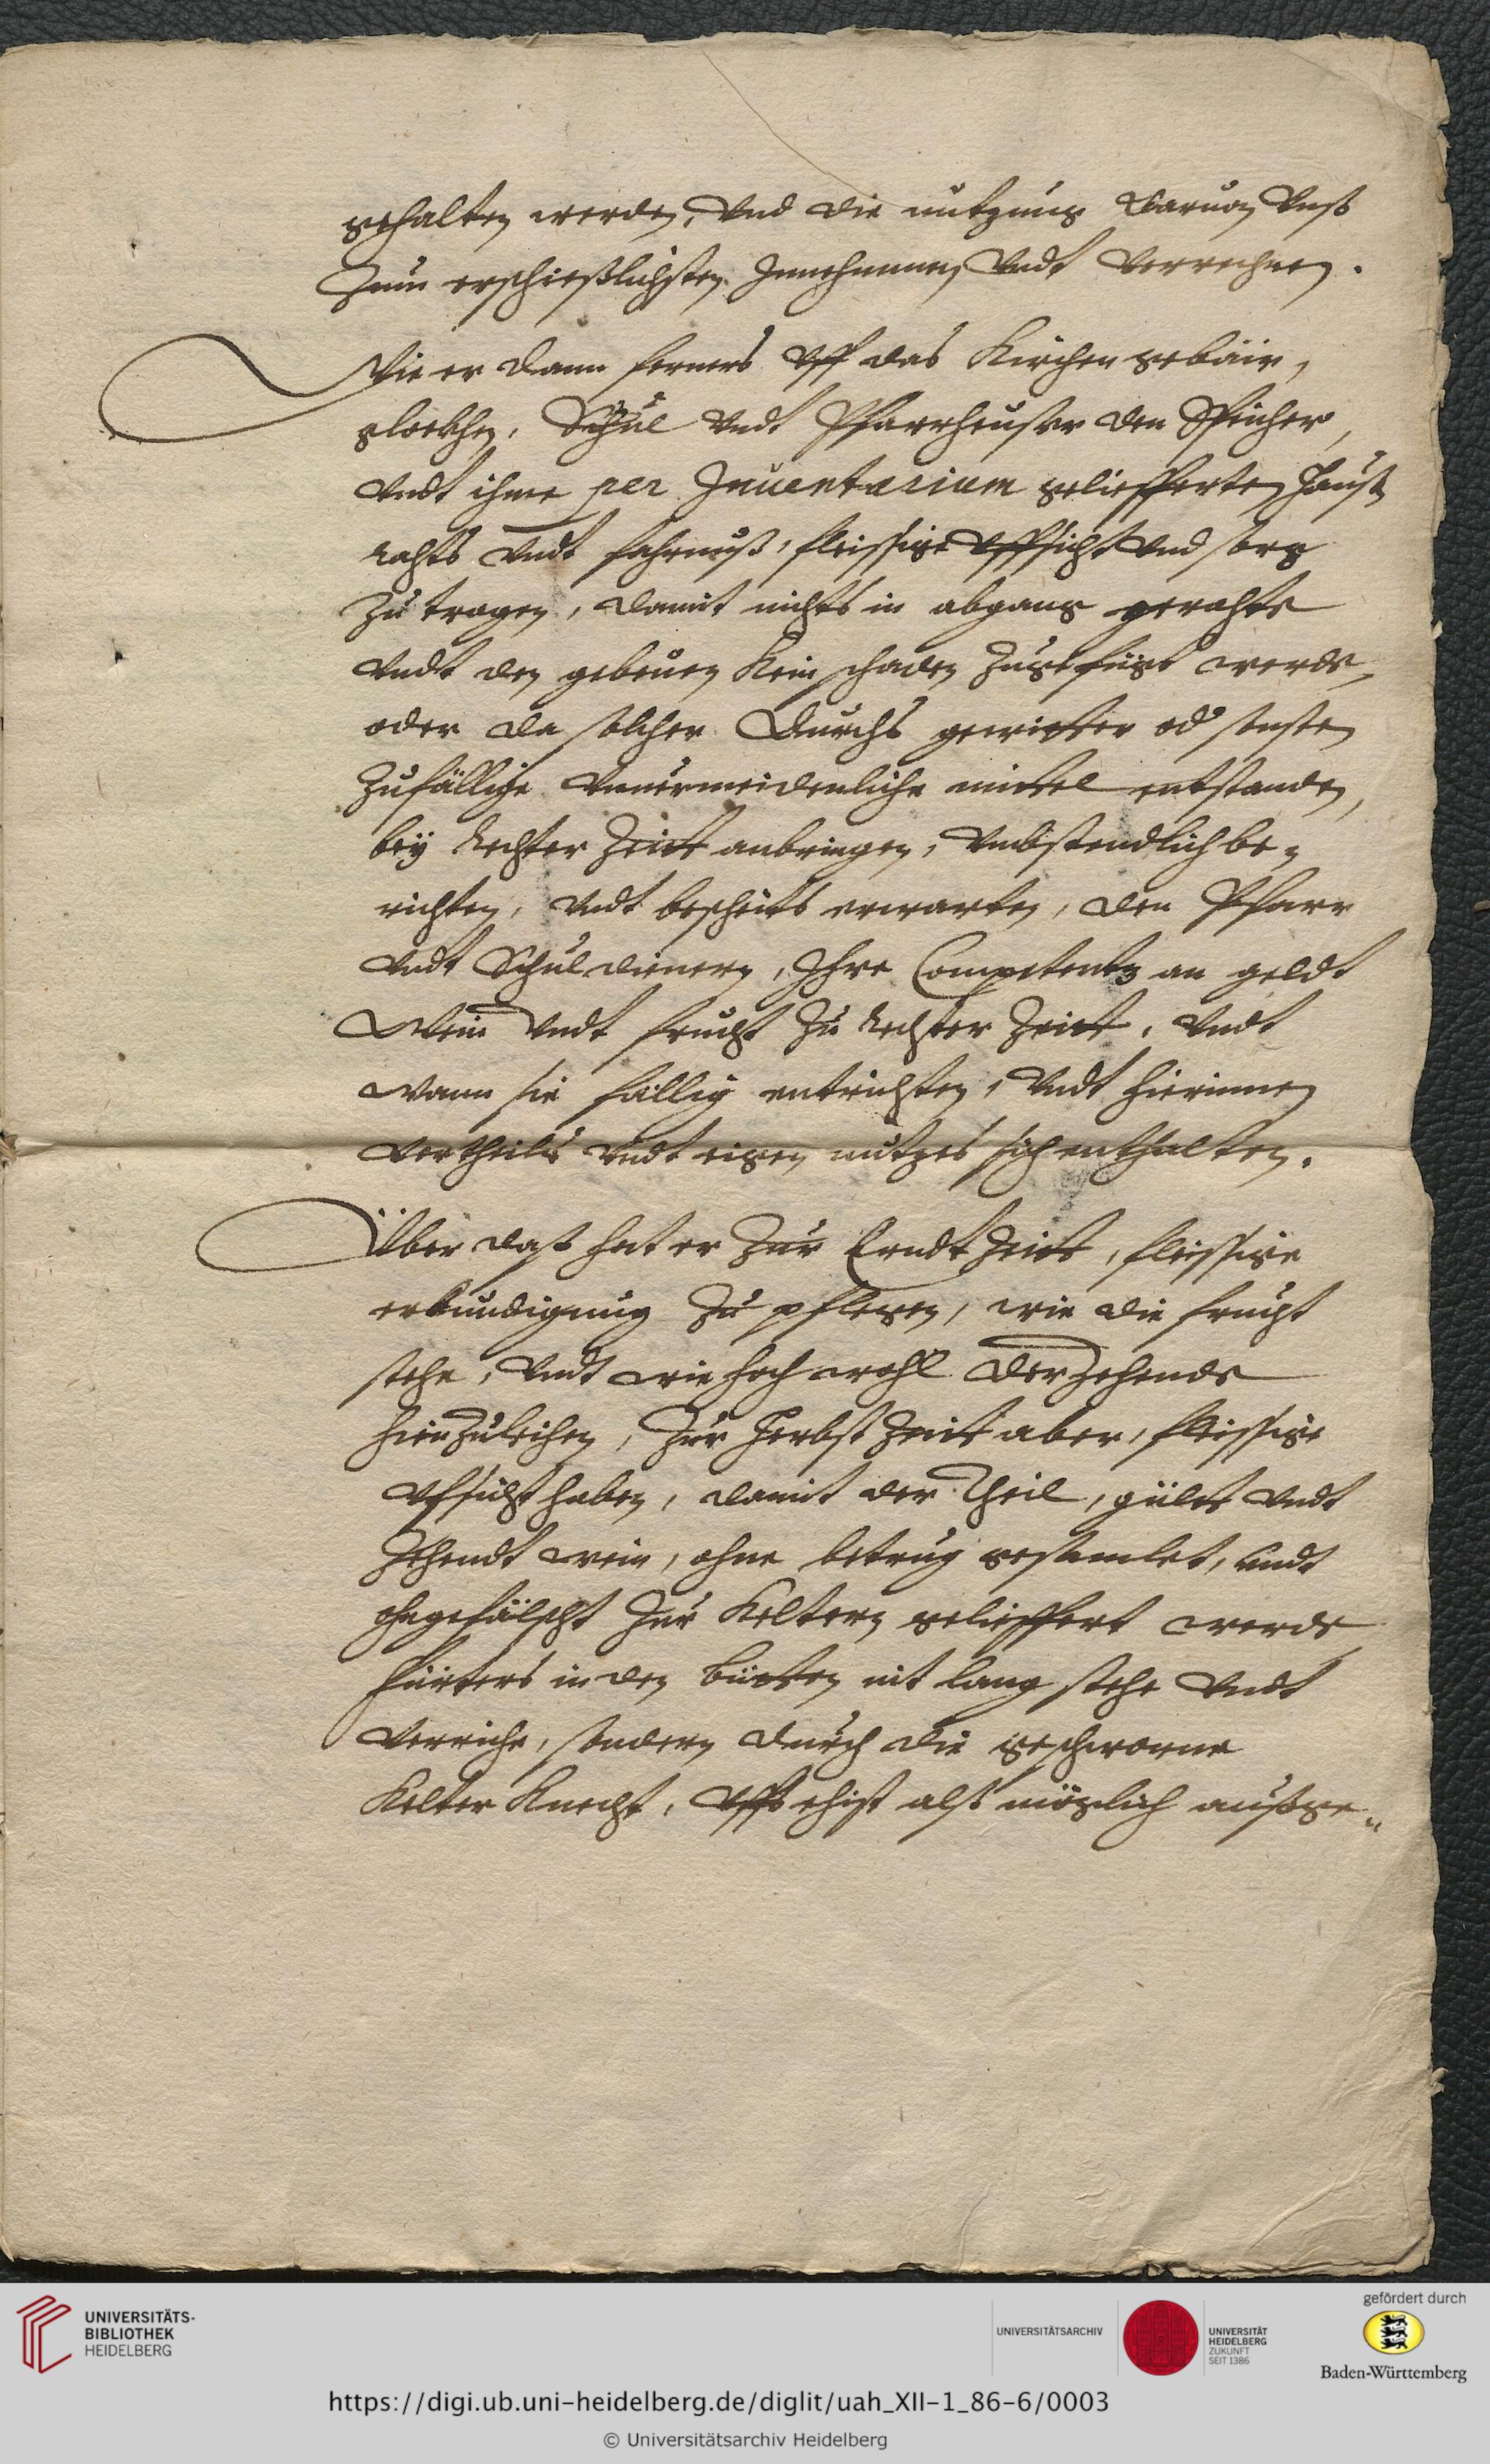 gehalten werden, Vnd die nutzung daruon Vnß
Zum ersprießlichsten Innehmmen Vndt Verrechnen.
Wie er dann ferners Vff das Kirchen gebäiw,
glockhen, Schul Vndt Pfarrheußer den Speicher,
Vndt ihme per Inuentarium gelieferten Hauß
rahts Vndt fahrnuß, fleissige Vffsicht Vnd sorg
Zu tragen, damit nichts in abgang gerahte
Vndt den gebeuen Kein schaden Zugefügt werde,
oder da solcher Durchs gewitter od sonsten
Zufällige Vnuermeidenliche mittel entstanden,
bey Rechter Zeitt anbringen, Vmbstendlich be-
richten, Vndt bescheits erwarten, den Pfarr
Vndt Schuldienern, Ihre Competentz an geldt
Wein Vndt frucht Zu Rechter Zeitt, Vndt
Wann sie fällig entrichten, Vndt hierinnen
Vortheils Vndt eigen nutzes sich enthalten.
Über daß hat er Zur Erndt Zeitt, fleissige
erkundigung Zu pflegen, wie die frucht
stehe, Vndt wie hoch wohl der Zehende
hinZuleihen, Zur Herbst Zeitt aber, fleissige
Vfsicht haben, damit der Theil, gültt Vndt
Zehendt wein, ohne betrug gesamlet, Vndt
ohngefälscht Zur Keltern gelieffert werde
fürters in den bütten nit lang stehe Vndt
Verrieche, sondern durch die geschworne
Kelter Knecht, Vffs ehist alß möglich außge-
UNIVERSITÄTS-
BIBLIOTHEK
HEIDELBERG
UNIVERSITÄTSARCHIV
UNIVERSITÄT
HEIDELBERG
ZUKUNFT
SEIT 1386
gefördert durch
Baden-Württemberg
https://digi.ub.uni-heidelberg.de/diglit/uah_XII-1_86-6/0003
© Universitätsarchiv Heidelberg